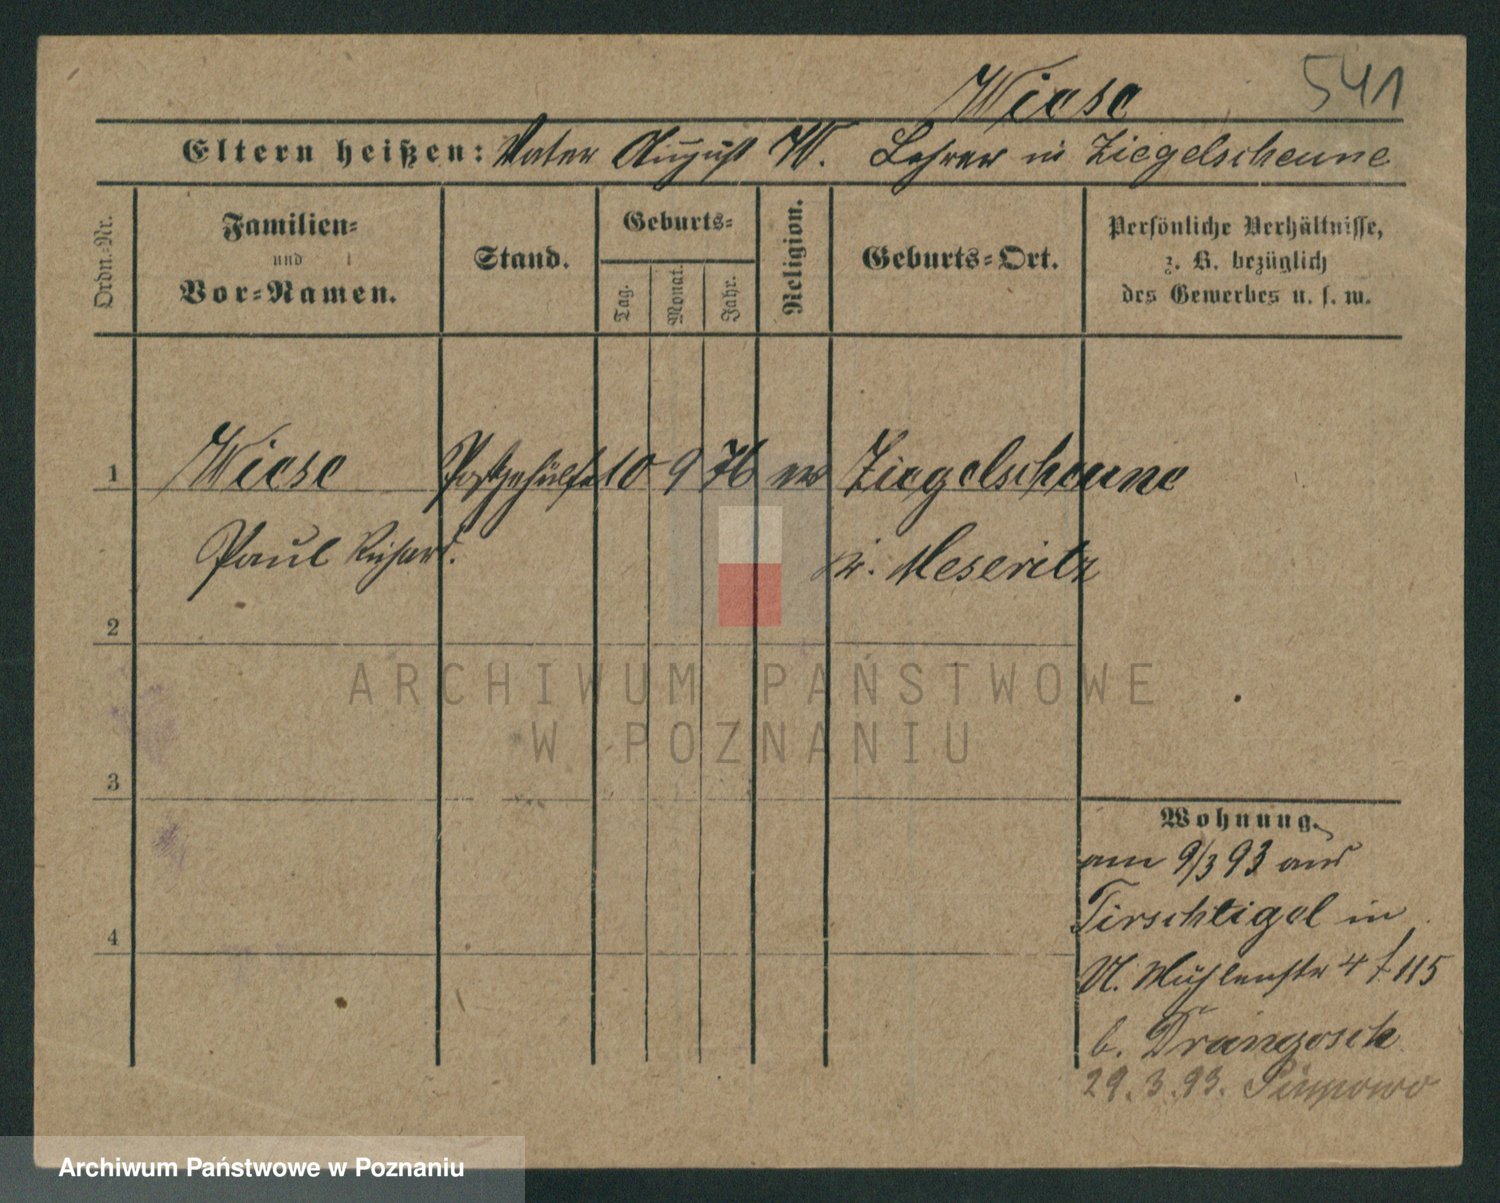 Wiese 541
Eltern heißen: Vater August W. Lehrer in Ziegelscheune
Ordn.-Nr.
Familien-
und
Vor-Namen.
Stand.
Geburts-
Tag.
Monat.
Jahr.
Religion.
Geburts-Ort.
Persönliche Verhältnisse,
z. B. bezüglich
des Gewerbes u. s. w.
1 Wiese Postgehülfe 10 9 76 ev Ziegelscheune
Paul Richard. Kr. Meseritz
2
ARCHIWUM PAŃSTWOWE
W POZNANIU
3
Wohnung.
am 9/3 93 aus
Tirschtigel in
4
U. Mühlenstr 4 f 115
b. Drangosch
29.3.93.
Archiwum Państwowe w Poznaniu